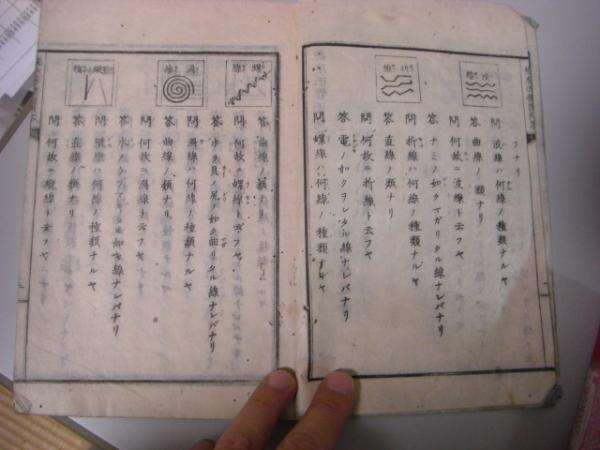 フナリ
波線
問 波線ハ何線ノ種類ナルヤ
答 曲線ノ類ナリ
問 何故ニ波線ト云フヤ
答 ナミノ如クマガリタル線ナレバナリ
折線
問 折線ハ何線ノ種類ナルヤ
答 直線ノ類ナリ
問 何故ニ折線ト云フヤ
答 電ノ如クヲレタル線ナレバナリ
問 螺線ハ何線ノ種類ナルヤ
螺線
答 曲線ノ類ナリ
問 何故ニ螺線ト云フヤ
答 貝ノ尻ノ如ク曲リタル線ナレバナリ
渦線
問 渦線ハ何線ノ種類ナルヤ
答 曲線ノ類ナリ
問 何故ニ渦線ト云フヤ
答 水ノ 如キ線ナレバナリ
問 線ハ何線ノ種類ナルヤ
答 直線ノ類ナリ
問 何故ニ 線ト云フヤ